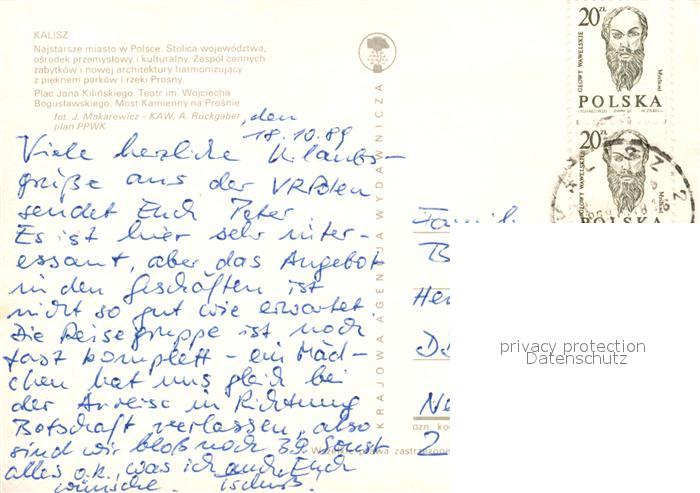 KALISZ
Najstarsze miasto w Polsce. Stolica województwa,
ośrodek przemysłowy i kulturalny. Zespół cennych
zabytków i nowej architektury harmonizujący
z pięknem parków i rzeki Prosny.
Plac Jana Kilińskiego. Teatr im. Wojciecha
Bogusławskiego. Most Kamienny na Prośnie
fot. J. Makarewicz - KAW, A. Rückgaber,
plan PPWK
, den
18.10.89
Viele herzliche Urlaubs-
grüße aus der VR Polen
sendet Euch Peter
Es ist hier sehr inter-
essant, aber das Angebot
in den Geschäften ist
nicht so gut wie erwartet.
Die Reisegruppe ist noch
fast komplett - ein Mäd-
chen hat uns gleich bei
der Anreise in Richtung
Botschaft verlassen, also
sind wir bloß noch 39. Sonst
alles o.k., was ich auch Euch
wünsche. Tschüß.
KRAJOWA AGENCJA WYDAWNICZA
Wszelkie prawa zastrzeżone
20 zł
GŁOWY WAWELSKIE
POLSKA
20 zł
GŁOWY WAWELSKIE
POLSKA
Famili
B
He
D
Ne
ozn. ko
2
privacy protection
Datenschutz